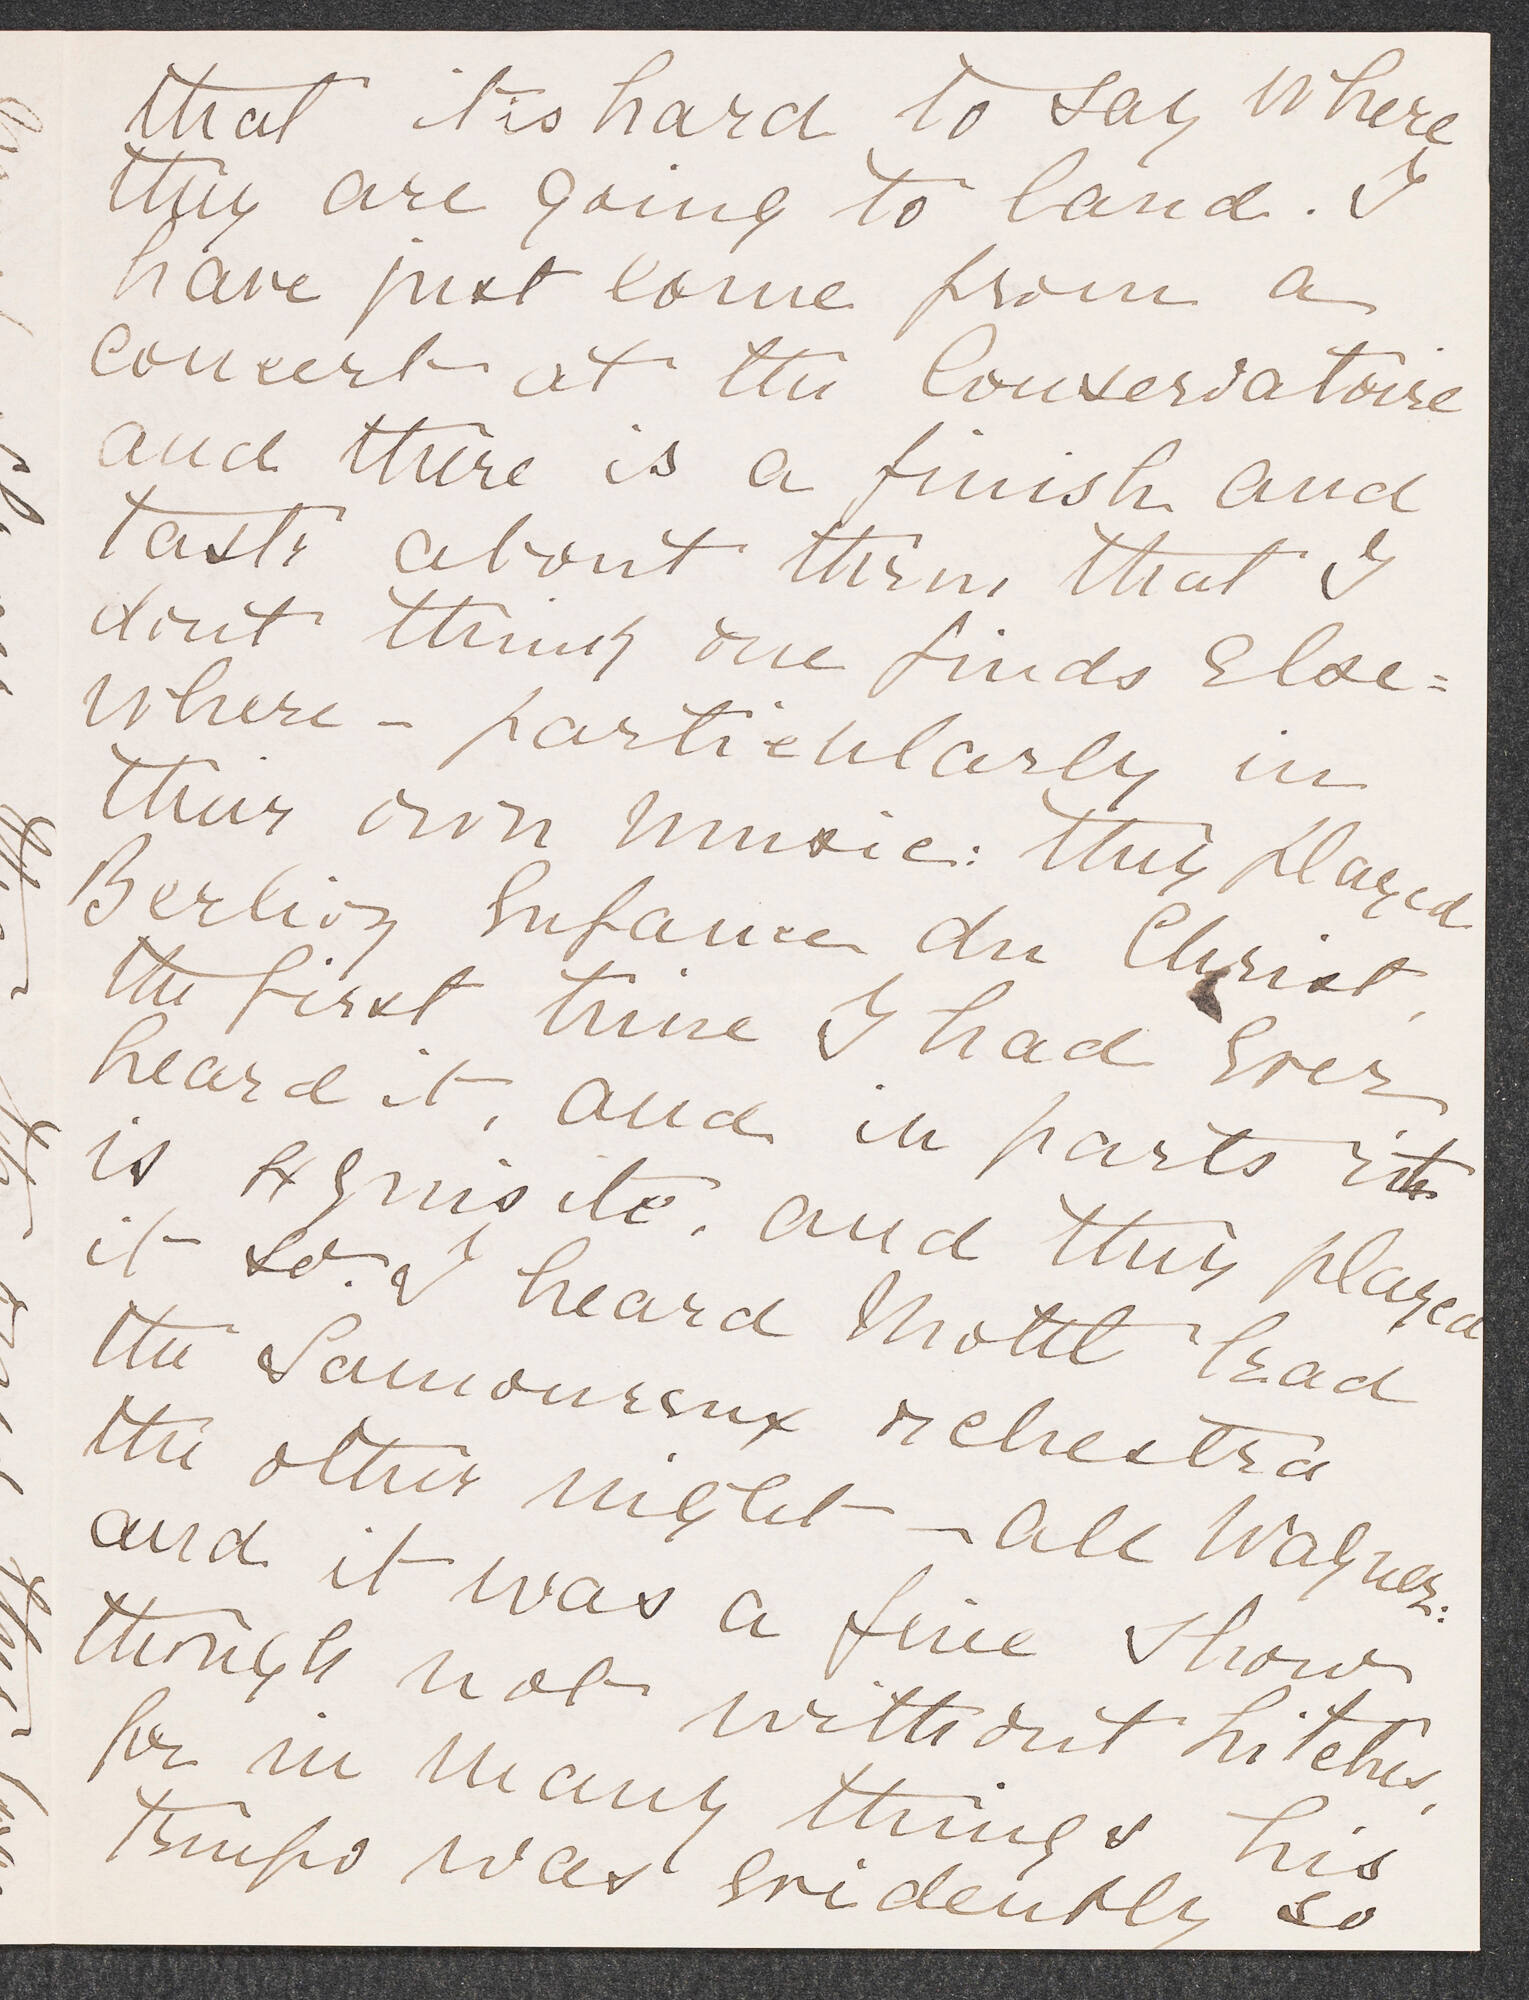 that it is hard to say where
they are going to land. I
have just come from a
concert at the Conservatoire
and there is a finish and
taste about them that I
dont think one finds else=
where – particularly in
their own music: they played
Berlioz Enfance du Christ,
the first time I had ever
heard it, and in parts it
is exquisite, and they played
it so. I heard Mottl lead
the Lamoureux orchestra
the other night – all Wagner:
and it was a fine show
though not without hitches,
for in many things his
tempo was evidently so